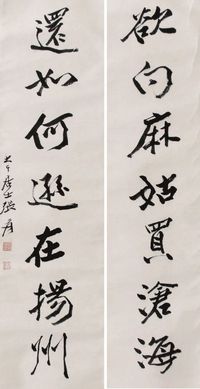 欲向麻姑買滄海
還如何遜在揚州
大千居士張爰